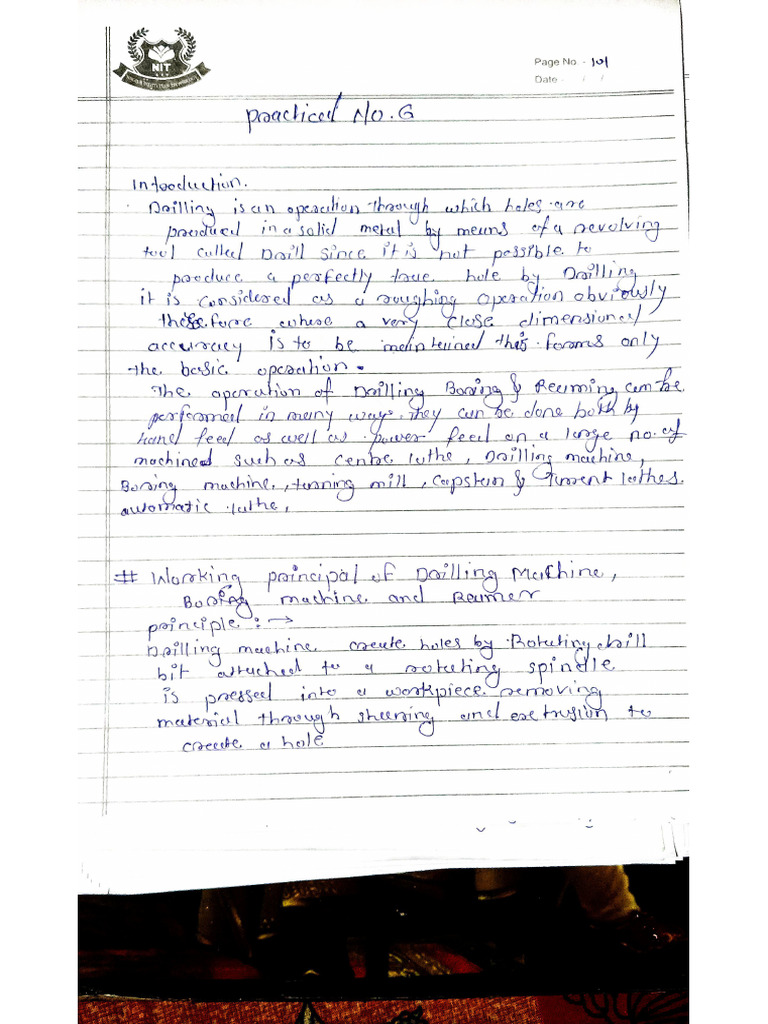 NIT
Page No. - 101
Date - / /
Practical No. 6
Introduction.
Drilling is an operation through which holes are
produced in a solid metal by means of a revolving
tool called Drill since it is not possible to
produce a perfectly true hole by Drilling
it is considered as a roughing operation obviously
therefore where a very close dimensional
accuracy is to be maintained this forms only
the basic operation.
The operation of Drilling Boring & Reaming can be
performed in many ways. They can be done both by
hand feed as well as power feed on a large no. of
machined such as centre lathe, Drilling machine,
Boring machine, turning mill, Capstan & Turrent lathes.
automatic lathe,
# Working principal of Drilling Machine,
Boring machine and Reamer
principle : →
Drilling machine create holes by Rotating drill
bit attached to a rotating spindle
is pressed into a workpiece removing
material through shearing and extrusion to
create a hole